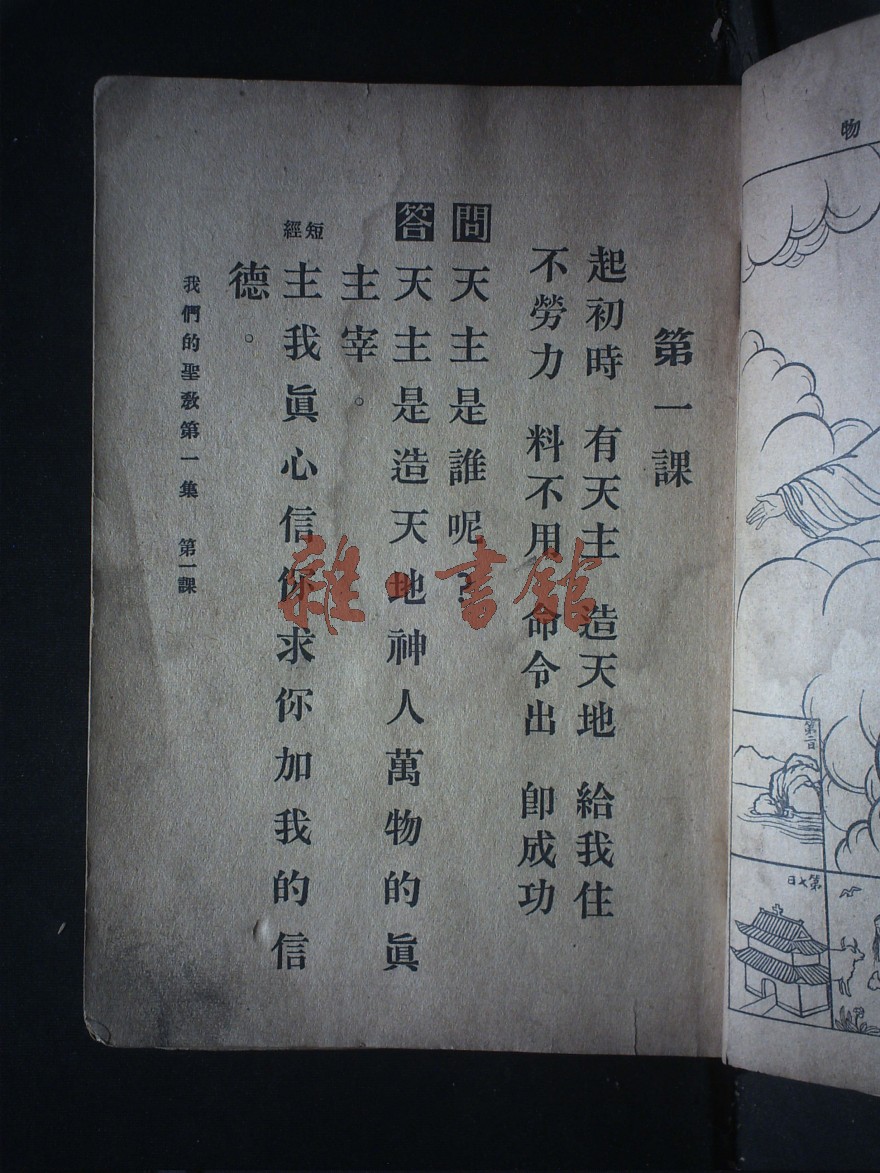 第一課
起初時　有天主　造天地　給我住
不勞力　料不用　命令出　卽成功
問 天主是誰呢？
答 天主是造天地神人萬物的眞
主宰。
短經 主我眞心信你求你加我的信
德。
我們的聖教第一集　第一課
雜·書館
物
第二日
第七日